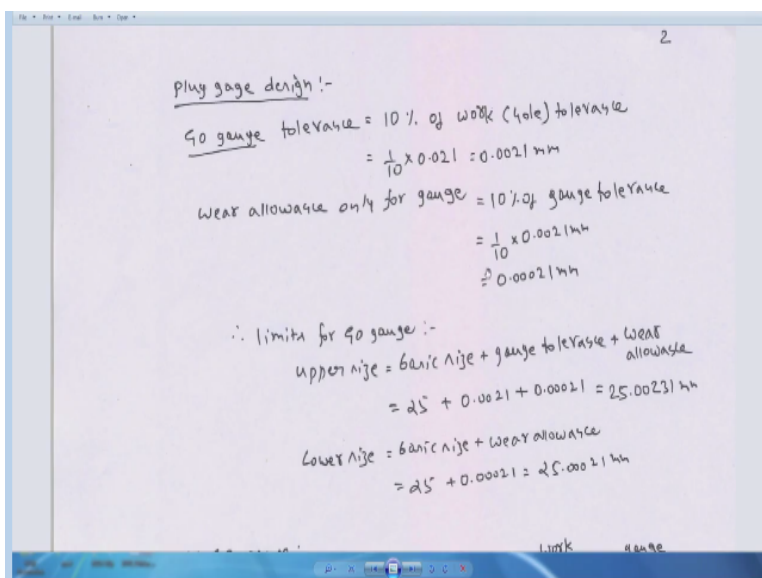 File Print E-mail Burn Open
2
Plug gage design :-
Go gauge tolerance = 10 % of work (hole) tolerance
= 1/10 x 0.021 = 0.0021 mm
wear allowance only for gauge = 10% of gauge tolerance
= 1/10 x 0.0021 mm
= 0.00021 mm
∴ limits for Go gauge :-
upper size = basic size + gauge tolerance + wear allowance
= 25 + 0.0021 + 0.00021 = 25.00231 mm
Lower size = basic size + wear allowance
= 25 + 0.00021 = 25.00021 mm
work gauge